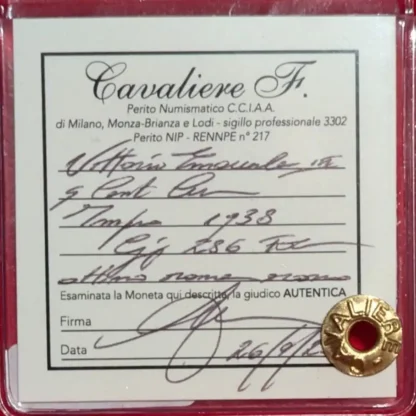 Cavaliere F.
Perito Numismatico C.C.I.A.A.
di Milano, Monza-Brianza e Lodi - sigillo professionale 3302
Perito NIP - RENNPE n° 217
Vittorio Emanuele III
5 Cent
Impero 1938
Gig 286
rame rosso
Esaminata la Moneta qui descritta, la giudico AUTENTICA
Firma
Data 26/9/2
VALIERE